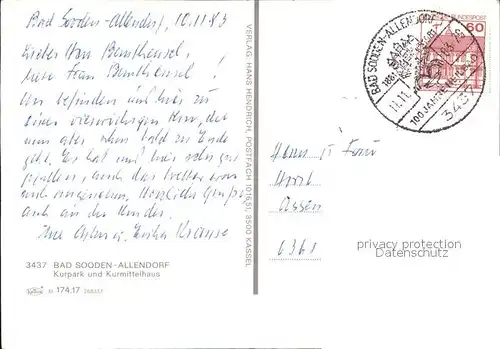 Bad Sooden-Allendorf, 10.11.83
Lieber Herr
liebe Frau
wir befinden uns hier zu
einer vierwöchigen Kur, die
nun aber schon bald zu Ende
geht. Es hat uns hier sehr gut
gefallen, auch das Wetter war
auch angenehm. Herzliche Grüße
auch an die Kinder.
Ihre u. Erika Krause
3437 BAD SOODEN-ALLENDORF
Kurpark und Kurmittelhaus
174.17
VERLAG HANS HENDRICH, POSTFACH 101651, 3500 KASSEL
BAD SOODEN-ALLENDORF
100 JAHRE
11.11.
343
BUNDESPOST
60
Herrn u. Frau
Horst
6361
privacy protection
Datenschutz